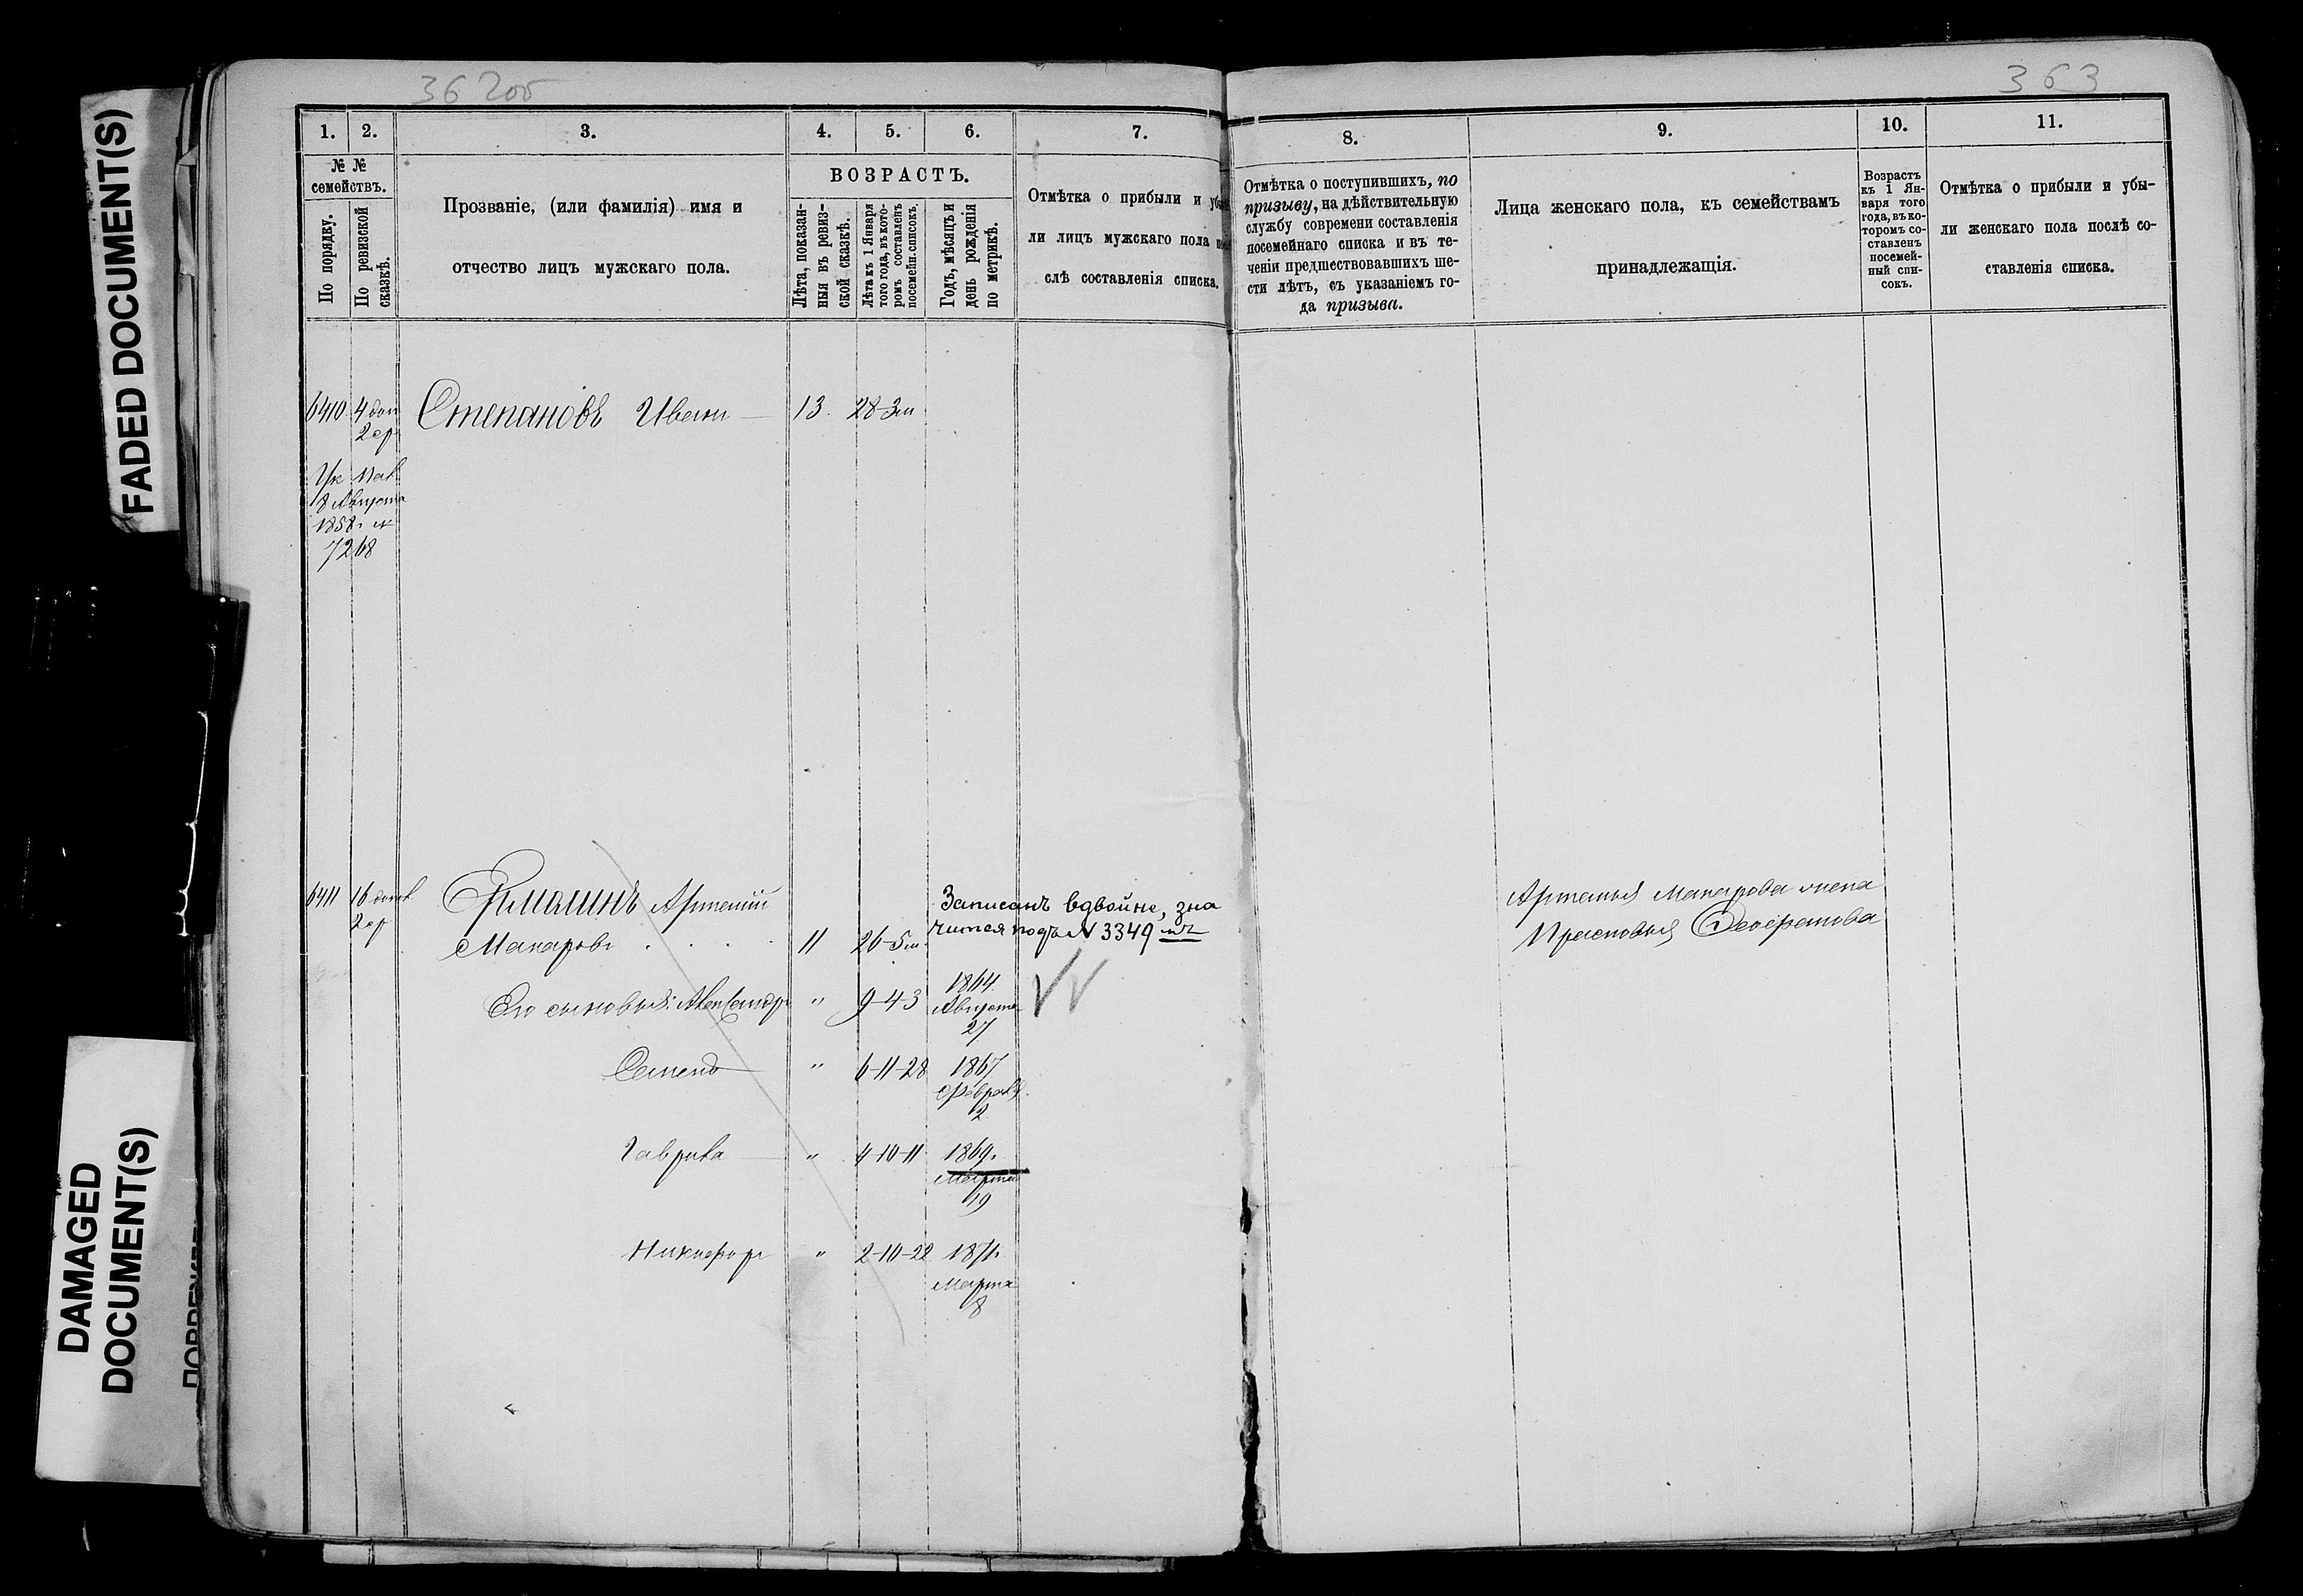 36 2об
363
FADED DOCUMENT(S)
DAMAGED
DOCUMENT(S)
1.
2.
3.
4.
5.
6.
7.
8.
9.
10.
11.
№ №
семействъ.
По порядку.
По ревизской
сказкѣ.
Прозваніе, (или фамилія) имя и
отчество лицъ мужскаго пола.
ВОЗРАСТЪ.
Лѣта, показан-
ныя въ ревиз-
ской сказкѣ.
Лѣта къ 1 Января
того года, въ кото-
ромъ составленъ
посемейн. списокъ.
Годъ, мѣсяцъ и
день рожденія
по метрикѣ.
Отмѣтка о прибыли и убы
ли лицъ мужскаго пола по
слѣ составленія списка.
Отмѣтка о поступившихъ, по
призыву, на дѣйствительную
службу современи составленія
посемейнаго списка и въ те-
ченіи предшествовавшихъ ше-
сти лѣтъ, съ указаніемъ го-
да призыва.
Лица женскаго пола, къ семействамъ
принадлежащія.
Возрастъ
къ 1 Ян-
варя того
года, въ ко-
торомъ со-
ставленъ
посемей-
ный спи-
сокъ.
Отмѣтка о прибыли и убы-
ли женскаго пола послѣ со-
ставленія списка.
6410 4 доп Степановъ Иванъ 13. 28-3м
2 ер
Ук Пал
8 Августа
1858г №
7268
6411 16 допол Артемій
2 ер
Записанъ вдвойне, зна
чится подъ № 3349 мъ
Макаровъ 11 26-5м
Его сыновья: Александръ " 9-4-3 1864.
Августа
27
Семенъ " 6-11-28 1867
Февраля
2
Гаврила " 4-10-11 1869.
Марта
19
Никифоръ " 2-10-22 1871.
Марта
8
Артемья Макарова жена
Прасковья